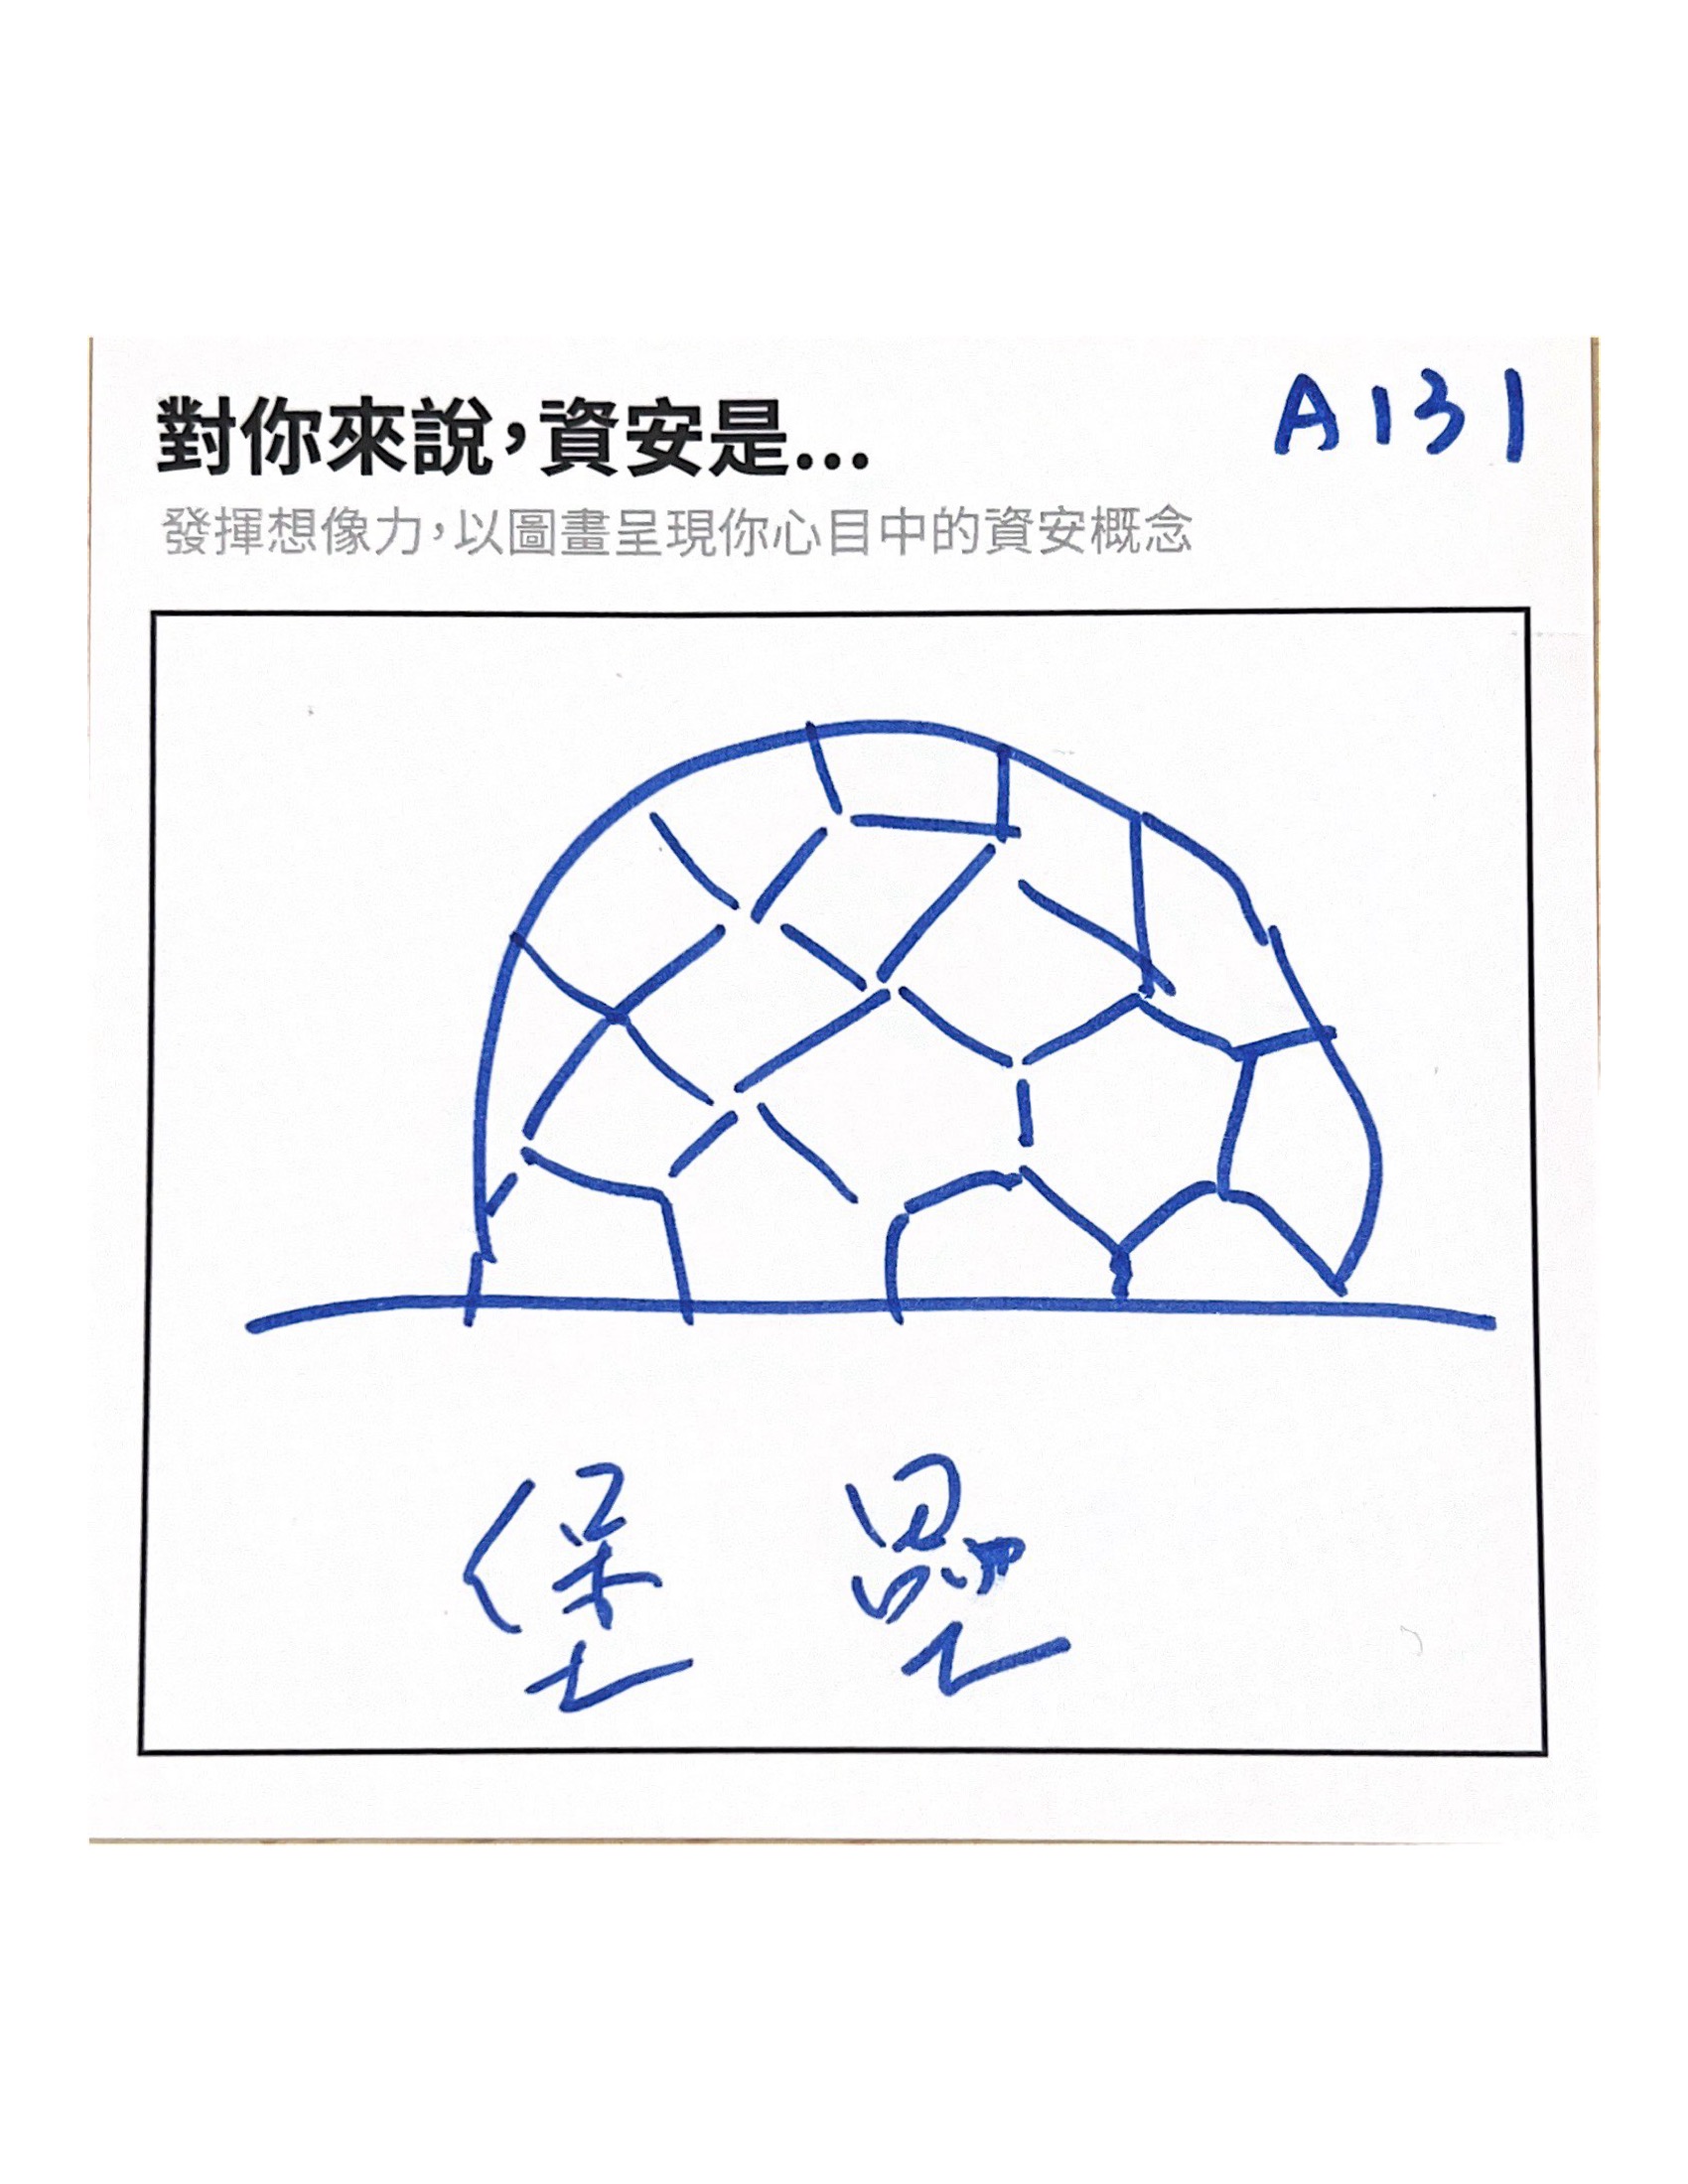 對你來說，資安是...
A131
發揮想像力，以圖畫呈現你心目中的資安概念
堡壘